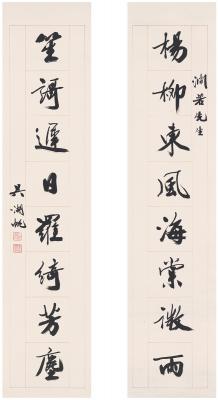 若先生
楊柳東風海棠微雨
笙謌遲日羅綺芳塵
吳湖帆